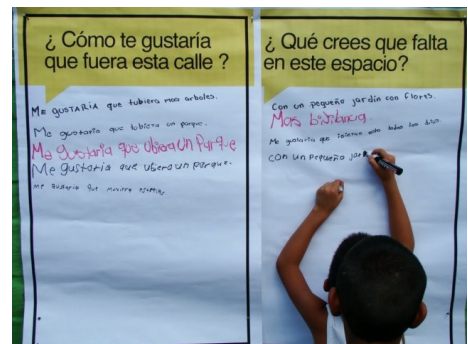 ¿ Cómo te gustaría
que fuera esta calle ?
ME gUSTARiA que tubiera mas arboles.
Me gustaria que tubiera un parque.
Me gustaria que ubiera un Parque
Me gustaria que ubiera un parque.
me gustaria que
¿ Qué crees que falta
en este espacio?
Con un pequeño jardin con flores.
Mas
Me gustaria que todos los dias.
CON UN PEQUEÑO jar